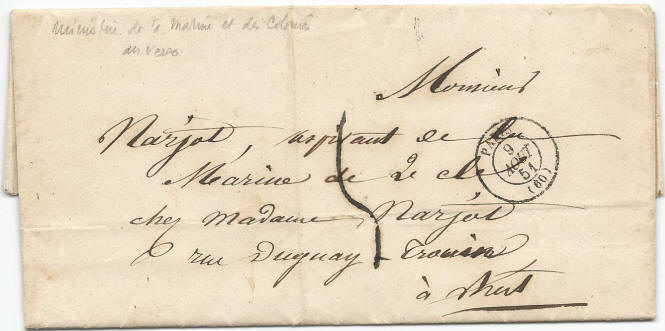 Ministère de la Marine et des Colonies
au verso
Monsieur
Narjot, aspirant de la
Marine de 2e cl
chez Madame Narjot
6 rue Duguay-Trouin
à Brest
PARIS
9
AOUT
51
(60)
5